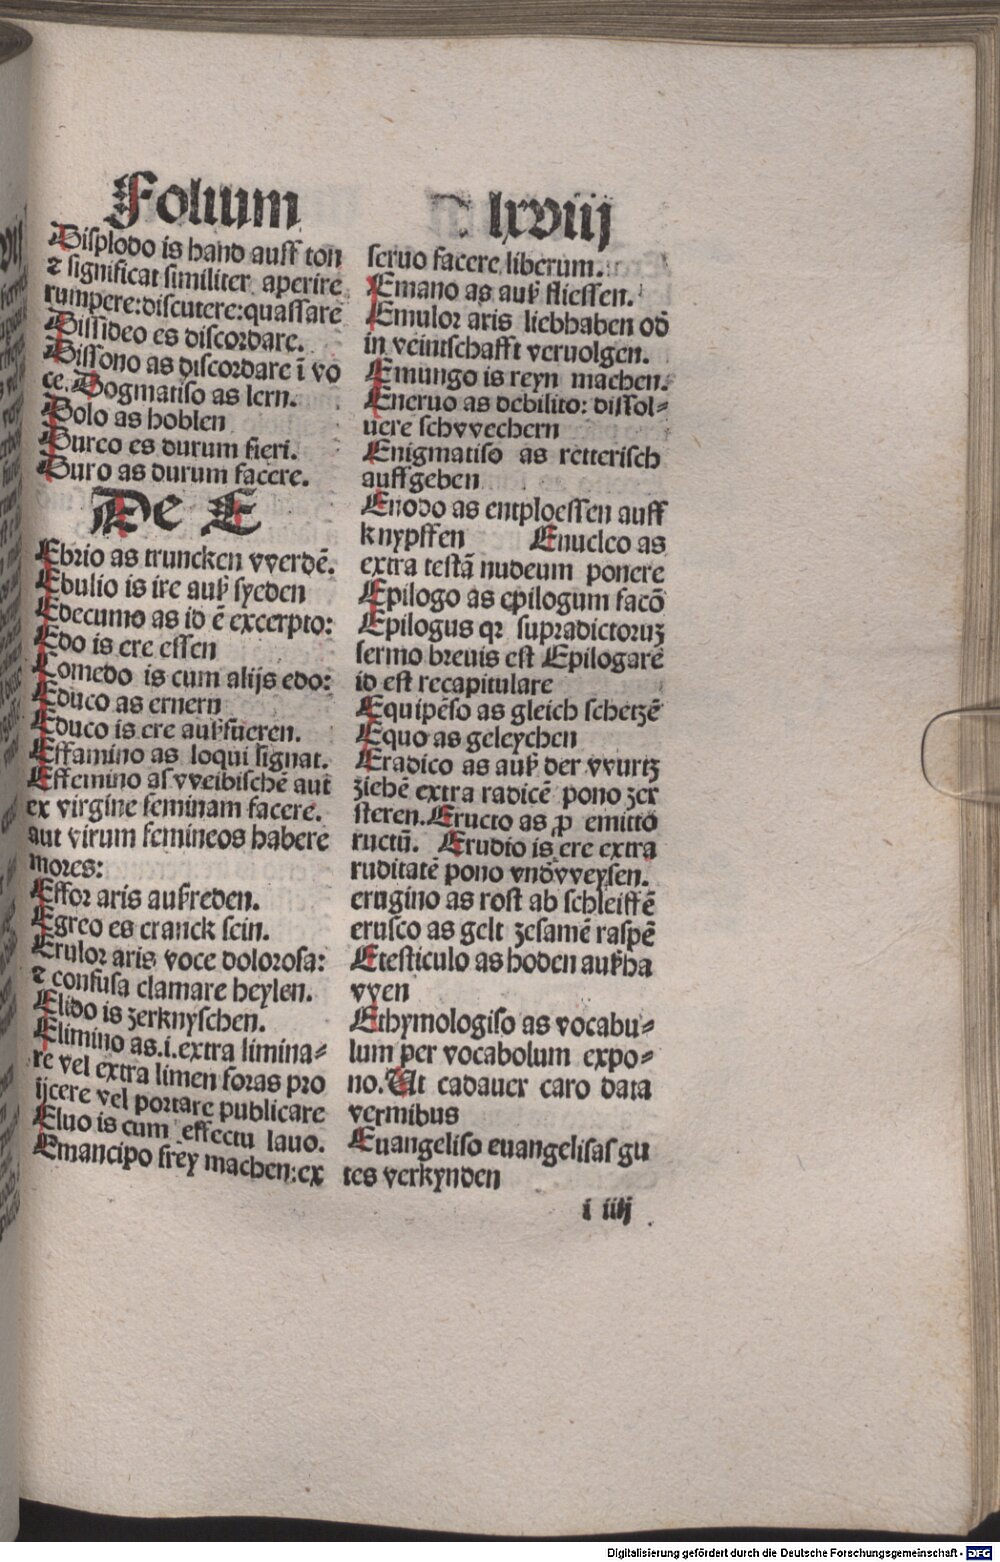 Folium lxviij
Displodo is hand auff ton
⁊ significat similiter aperire
rumpere:discutere:quassare
Dissideo es discordare.
Dissono as discordare ī vo
ce. Dogmatiso as lern.
Dolo as hoblen
Dureo es durum fieri.
Duro as durum facere.
De E
Ebrio as truncken vverdē.
Ebulio is ire auß syeden
Edecumo as id ē excerpto:
Edo is ere essen
Comedo is cum alijs edo:
Educo as ernern
Educo is ere außfueren.
Effamino as loqui signat.
Effemino as vveibischē aut
ex virgine feminam facere.
aut virum femineos habere
mores:
Effor aris außreden.
Egreo es cranck sein.
Erulor aris voce dolorosa:
⁊ confusa clamare heylen.
Elido is zerknyschen.
Elimino as.i.extra limina⸗
re vel extra limen foras pro
ijcere vel portare publicare
Eluo is cum effectu lauo.
Emancipo frey machen:ex
seruo facere liberum.
Emano as auß fliessen.
Emulor aris liebhaben od̄
in veintschafft veruolgen.
Emungo is reyn machen.
Eneruo as debilito: dissol⸗
uere schvvechern
Enigmatiso as retterisch
auffgeben
Enodo as entploessen auff
knypffen Enucleo as
extra testā nudeum ponere
Epilogo as epilogum facō
Epilogus qꝛ supradictoruꝫ
sermo breuis est Epilogarē
id est recapitulare
Equipēso as gleich schetzē
Equo as geleychen
Eradico as auß der vvurtz
ziehē extra radicē pono zer
steren.Eructo as ꝓ emitto
ructū. Erudio is ere extra
ruditatē pono vnd̄vveysen.
erugino as rost ab schleiffē
erusco as gelt zesamē raspē
Etesticulo as hoden außha
vven
Ethymologiso as vocabu⸗
lum per vocabolum expo⸗
no.Ut cadauer caro data
vermibus
Euangeliso euangelisas gu
tes verkynden
i iiij
Digitalisierung gefördert durch die Deutsche Forschungsgemeinschaft - DFG